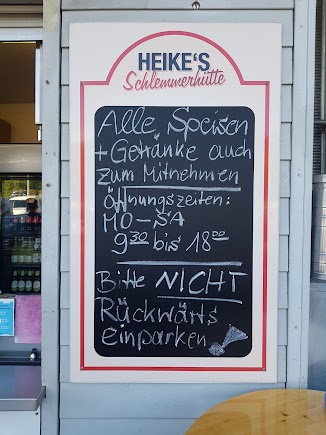 HEIKE'S
Schlemmerhütte
Alle Speisen
+ Getränke auch
zum Mitnehmen
Öffnungszeiten:
MO-SA
9³⁰ bis 18⁰⁰
Bitte NICHT
Rückwärts
einparken